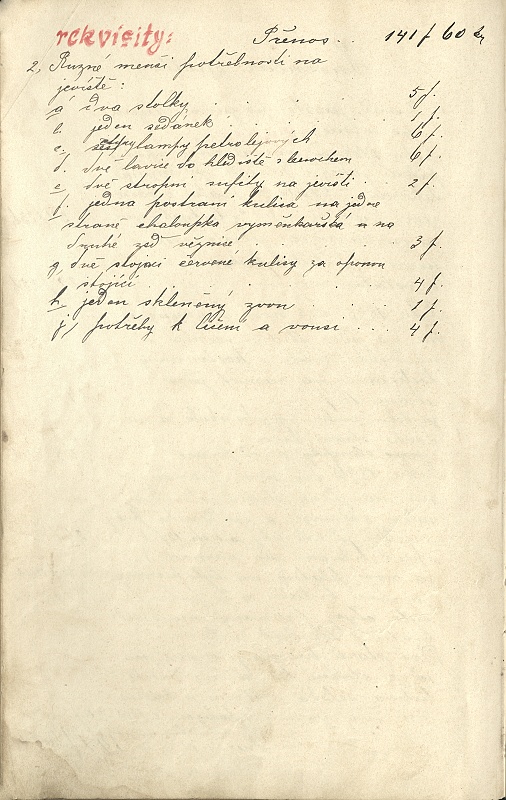 rekvisity: Přenos . . 141 f 60 kr
2, Ruzné menší potřebnosti na
jeviště:
a dva stolky . . . . 5 f.
b. jeden sedánek . . . . 1 f.
c, lampy petrolejových 6 f.
d. dvě lavice do hlediště s lenochem 6 f.
e, dvě stropní sufity na jevišti . . 2 f.
f. jedna postraní kulisa na jedné
straně chaloupka výměnkařská a na
druhé zeď věznice . . . . 3 f.
g, dvě stojací červené kulisy za oponou
stojící . . . . . 4 f.
h jeden skleněný zvon . . . . 1 f.
j, potřeby k líčení a vousi . . . 4 f.